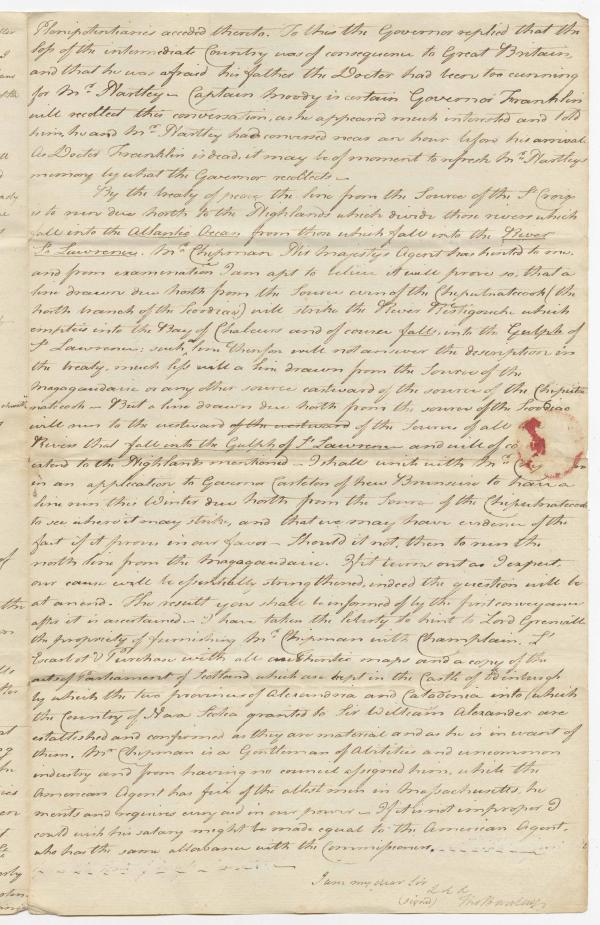 Plenipotentiaries acceded thereto. To this the Governor replied that the
loss of the intermediate Country was of consequence to Great Britain,
and that he was afraid his father the Doctor had been too cunning
for Mr. Hartley — Captain Moody is certain Governor Franklin
will recollect this conversation, as he appeared much interested and told
him, he and Mr. Hartley had conversed near an hour before his arrival.
As Doctor Franklin is dead, it may be of moment to refresh Mr. Hartley's
memory by what the Governor recollects —
By the treaty of peace the line from the Source of the St. Croix
is to run due north to the Highlands which divide those rivers which
fall into the Atlantic Ocean from those which fall into the River
St. Lawrence. Mr. Chipman His Majesty's Agent has hinted to me,
and from examination I am apt to believe it will prove so, that a
line drawn due north from the Source even of the Cheputnatecook (the
north branch of the Scoodiac) will strike the River Ristigouche which
empties into the Bay of Chaleurs and of course falls into the Gulph of
St Lawrence; such a line therefore will not answer the description in
the treaty, much less will a line drawn from the Source of the
Magagaudavic or any other source eastward of the source of the Cheput-
natecook — But a line drawn due north from the source of the Scoodiac
will run to the westward of the westward of the Source of all
Rivers that fall into the Gulph of St Lawrence and will of co
extend to the Highlands mentioned — I shall unite with Mr. Chipman
in an application to Governor Carleton of New Brunswic to have a
line run this Winter due north from the Source of the Cheputnatecook
to see where it may strike, and that we may have evidence of the
fact if it proves in our favor — Should it not, then to run the
north line from the Magagaudavic. If it turns out as I expect
our cause will be essentially strengthened, indeed the question will be
at an end. The result you shall be informed of by the first conveyance
after it is ascertained — I have taken the liberty to hint to Lord Grenville
the propriety of furnishing Mr. Chipman with Champlain, L'
Escarbot & Purchase with all authentic maps and a copy of the
acts of Parliament of Scotland which are kept in the Castle of Edinburgh
by which the two provinces of Alexandria and Caledonia into (which
the Country of Nova Scotia granted to Sir William Alexander are
established and confirmed as they are material and as he is in want of
them. Mr. Chipman is a Gentleman of Abilities and uncommon
industry and from having no council assigned him, while the
American Agent has few of the ablest men in Massachusetts, he
merits and requires every aid in our power — If it is not improper I
could wish his salary might be made equal to the American Agent,
who has the same allowance with the Commissioners.
I am my dear Sir
&c &c &c
(signed) Tho Barclay